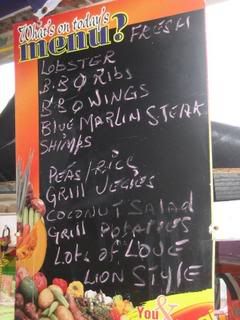 What's on today's
menu?
FRESH
LOBSTER
B.B.Q RIBS
B.B.Q WINGS
BLUE MARLIN STEAK
SHIMPS
PEAS/RICE
GRILL VEGIES
COCONUT SALAD
GRILL POTATOES
LOTS OF LOVE
LION STYLE
You &